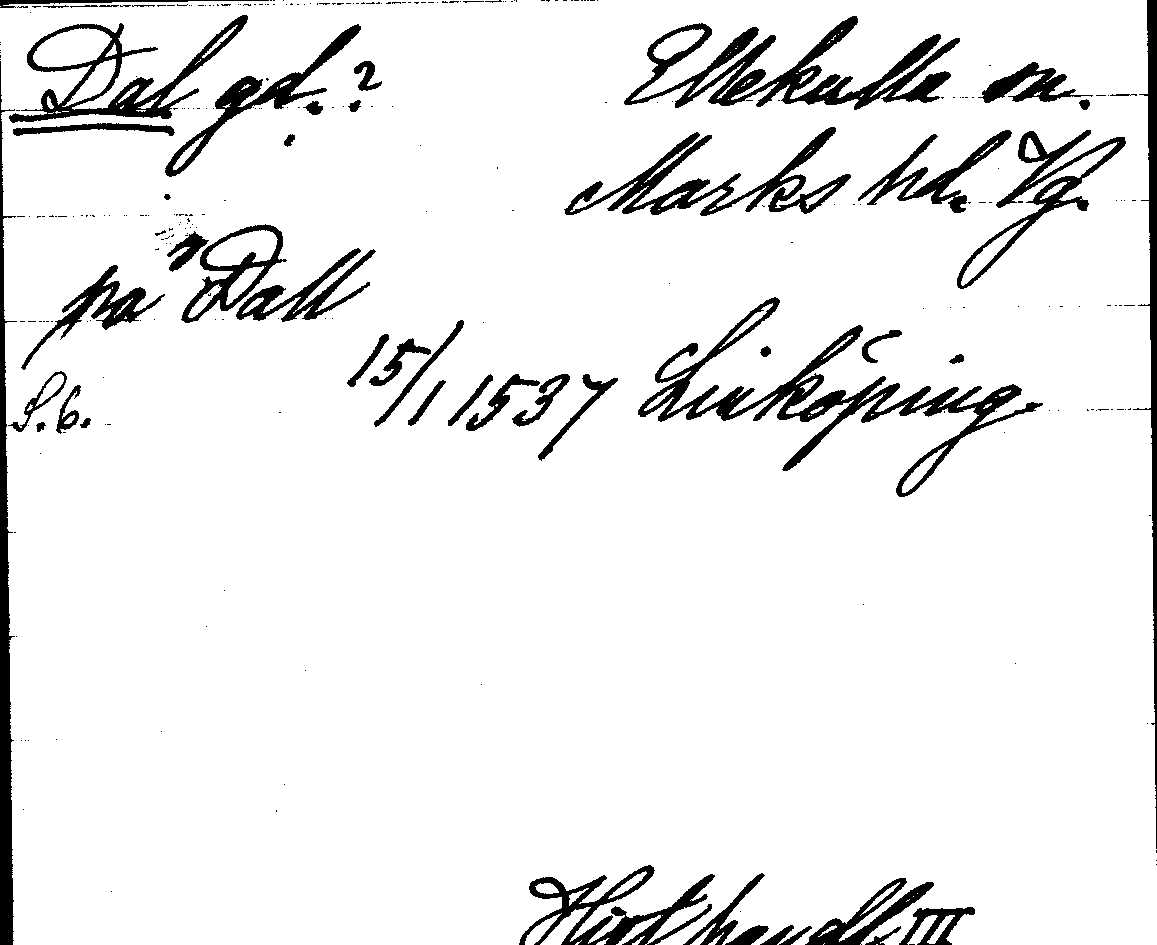 Dal gd.? Ellekulla sn.
Marks hd. Vg.
på Dall
S.6. 15/1 1537 Linköping
Hist handl. III